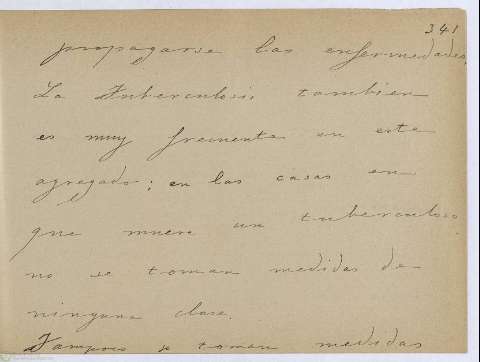 341
propagarse las enfermedades.
La Tuberculosis tambien
es muy frecuente en este
agregado; en las casas en
que muere un tuberculoso
no se toman medidas de
ninguna clase.
Tampoco se toman medidas